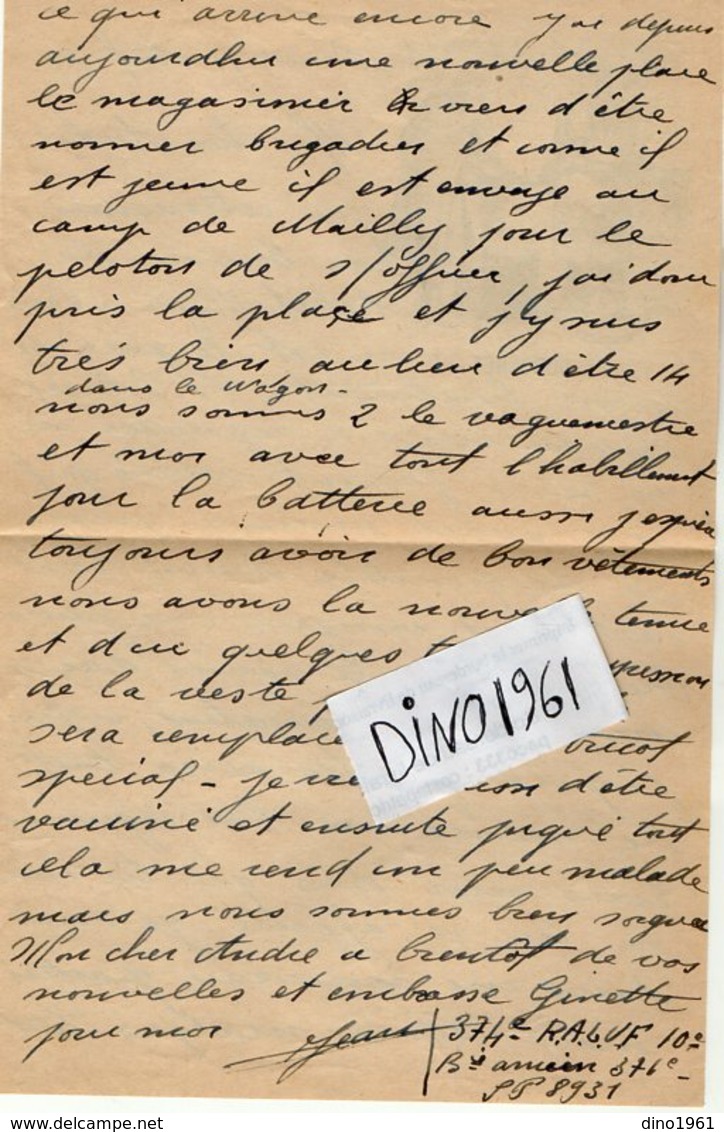 ce qui arrive encore j'ai depuis
aujourdhui une nouvelle place
le magasinier vien d'être
nommer brigadier et comme il
est jeune il est envoye au
camp de Mailly pour le
peloton de s/officier, j'ai donc
pris la place et j'y suis
très bien au lieu d'être 14
dans le wagon -
nous sommes 2 le vaguemestre
et moi avec tout l'habillement
pour la batterie aussi j'espère
toujours avoir de bon vêtements
nous avons la nouvelle tenue
et d'ici quelques
de la veste
sera remplacé tricot
special - je d'être
vacciné et ensuite piqué tout
cela me rend un peu malade
mais nous sommes bien soigné
Mon cher André a bientôt de vos
nouvelles et embrasse Ginette
pour moi Jean
374e R.A.L.V.F 10e
Bie ancien 376e -
SP 8931
DINO1961
dino1961